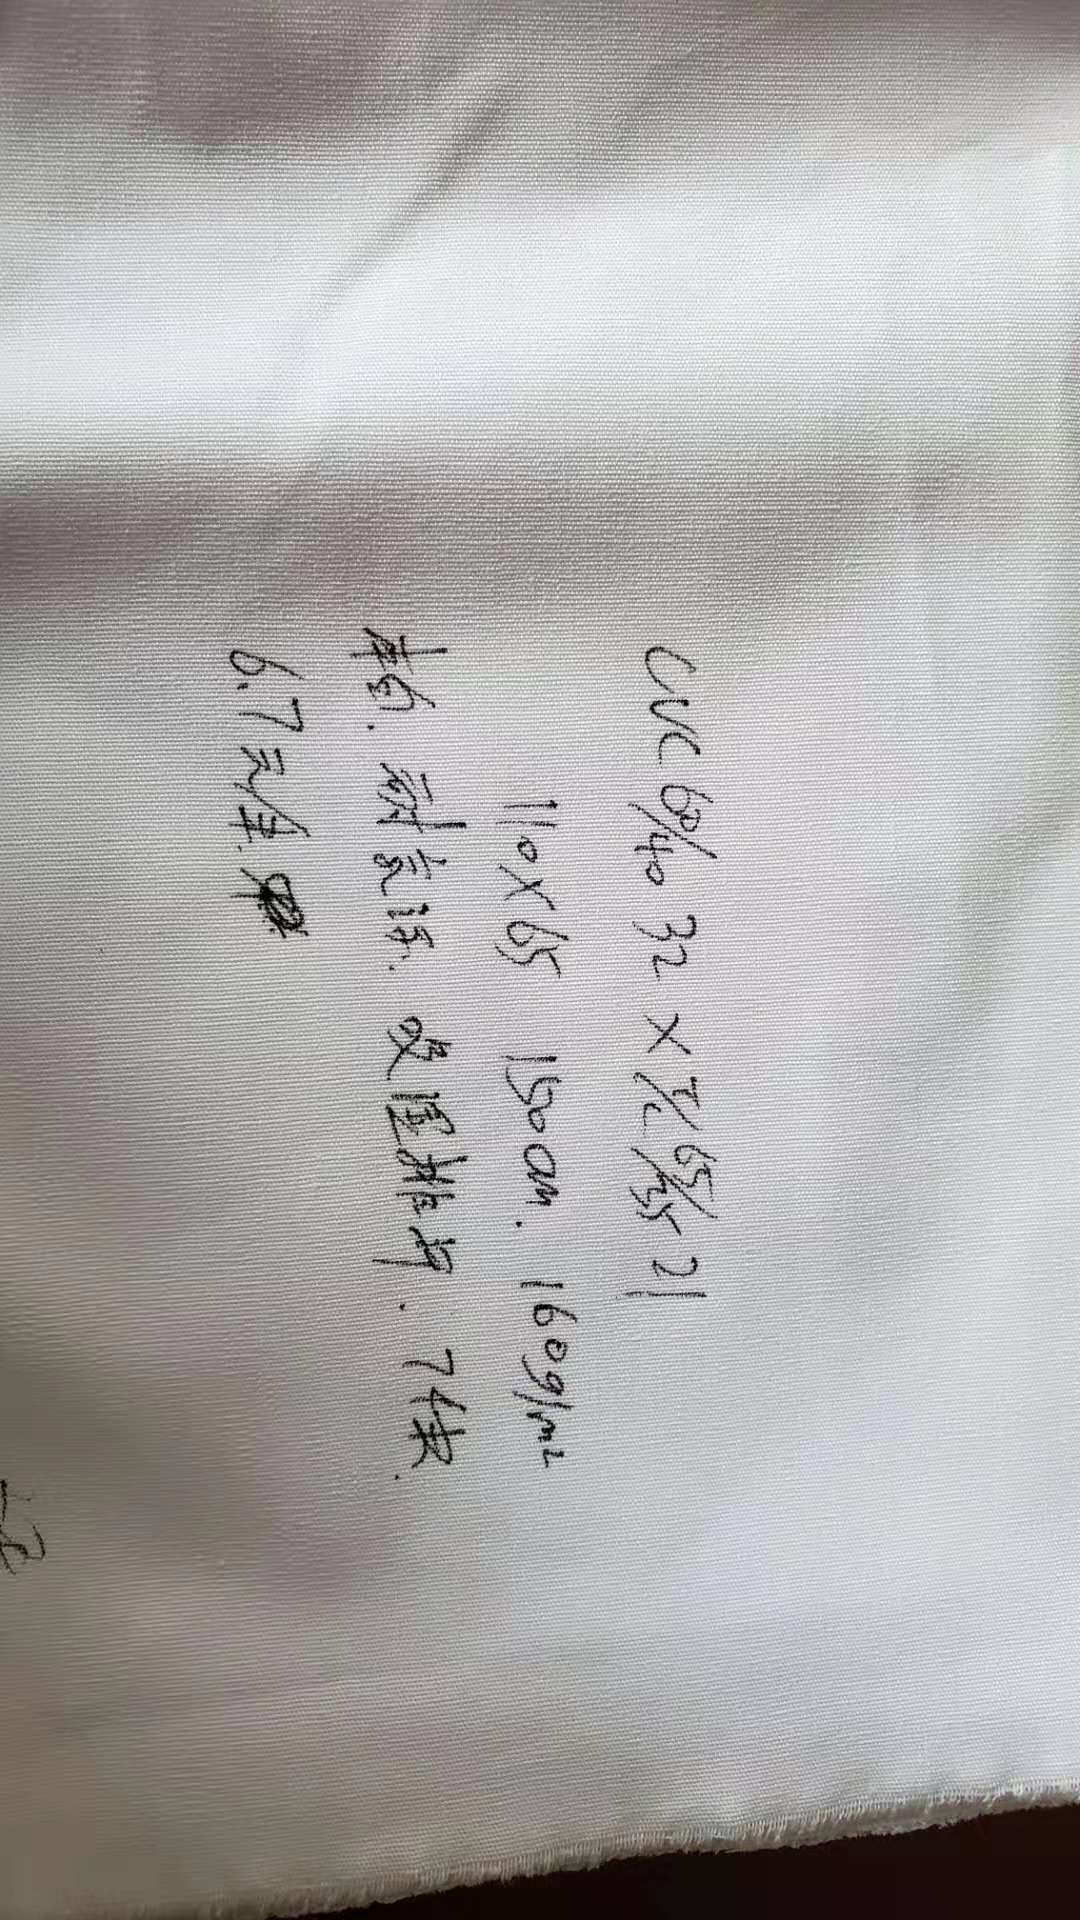 CVC 60/40 32 × T/C 65/35 21
110×65 150cm. 160g/m²
本白. 耐氯漂. 吸湿排汗. 7天.
6.7元/米.